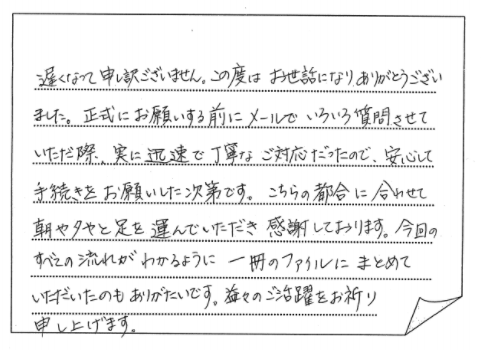 遅くなって申し訳ございません。この度は お世話になり、ありがとうござい
ました。正式にお願いする前にメールで いろいろ質問させて
いただ際、実に迅速で丁寧な ご対応だったので、安心して
手続きを お願いした次第です。こちらの都合に合わせて
朝や夕やと足を運んでいただき 感謝しております。今回の
すべての流れがわかるように 一冊のファイルに まとめて
いただいたのもありがたいです。益々のご活躍をお祈り
申し上げます。